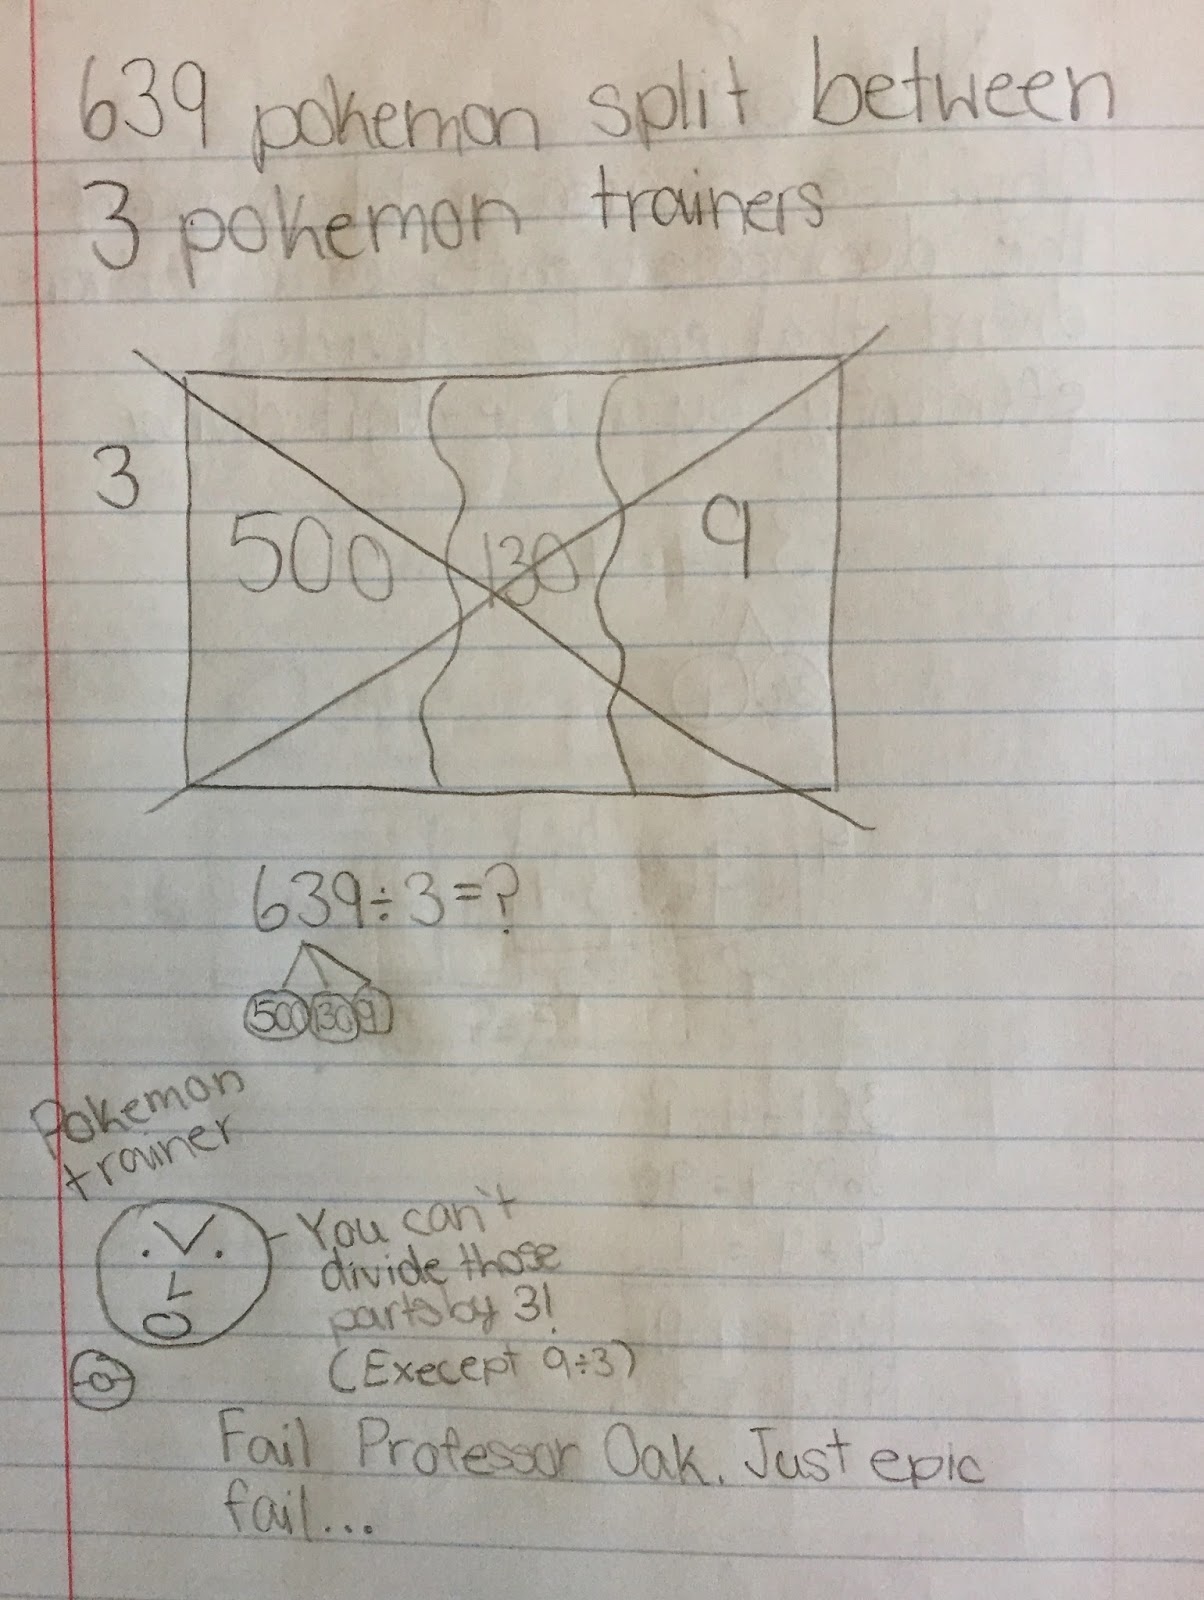 639 pokemon split between
3 pokemon trainers
3
500 130 9
639÷3=?
500 130 9
Pokemon
trainer
You can't
divide those
parts by 3!
(Execept 9÷3)
Fail Professor Oak. Just epic
fail...